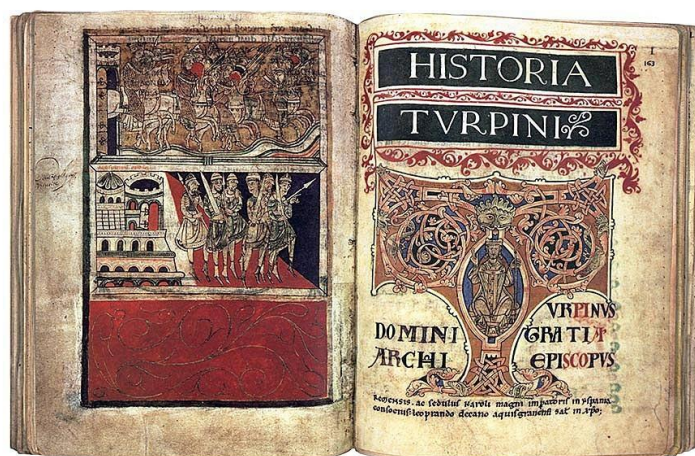 I
163
HISTORIA
TVRPINI
T
VRPINVS
DOMINI GRATIA
ARCHI EPISCOPVS
REMENSIS. ac sedulus Karoli magni imperatoris in yspania
consocius: leoprando decano aquisgranensi sat in xpo;